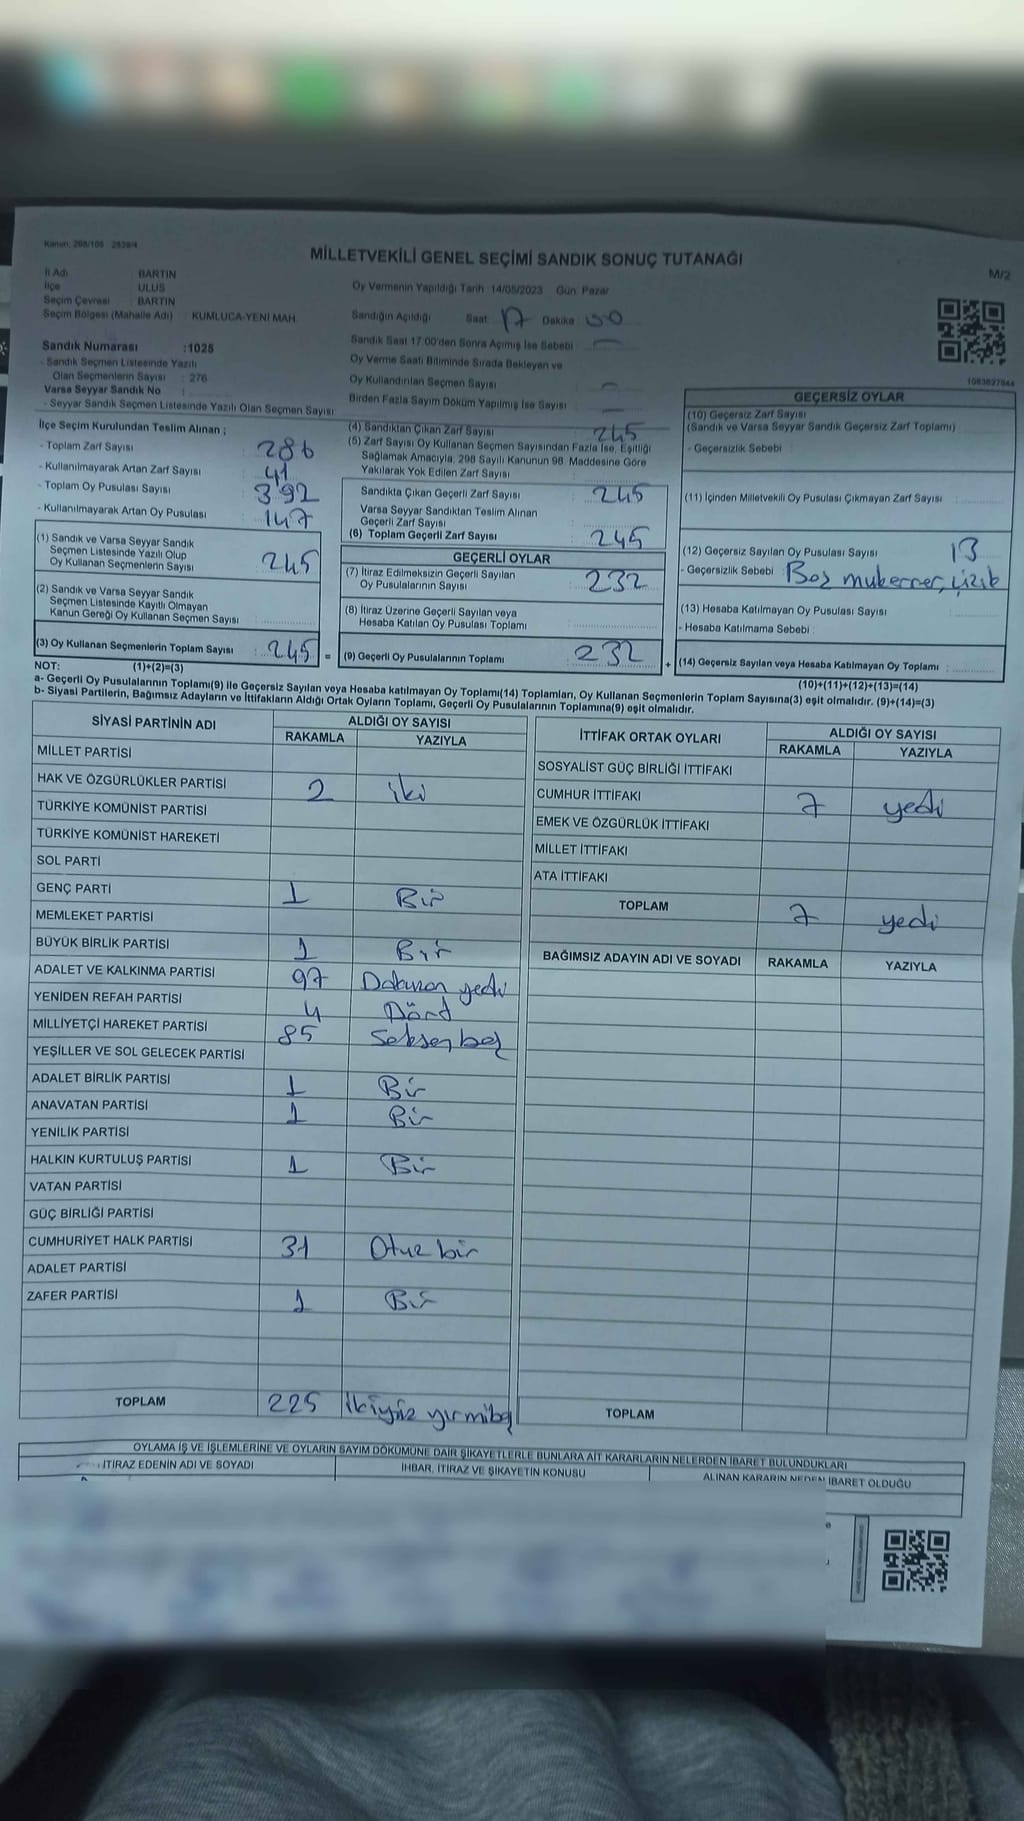 Kanun: 298/105 2839/4
MİLLETVEKİLİ GENEL SEÇİMİ SANDIK SONUÇ TUTANAĞI
M/2
İl Adı : BARTIN
İlçe : ULUS
Seçim Çevresi : BARTIN
Seçim Bölgesi (Mahalle Adı) : KUMLUCA-YENİ MAH.
Sandık Numarası :1025
- Sandık Seçmen Listesinde Yazılı
Olan Seçmenlerin Sayısı : 276
Varsa Seyyar Sandık No
- Seyyar Sandık Seçmen Listesinde Yazılı Olan Seçmen Sayısı
Oy Vermenin Yapıldığı Tarih :14/05/2023 Gün: Pazar
Sandığın Açıldığı Saat 17 Dakika 00
Sandık Saat 17:00'den Sonra Açılmış İse Sebebi
Oy Verme Saati Bitiminde Sırada Bekleyen ve
Oy Kullandırılan Seçmen Sayısı
Birden Fazla Sayım Döküm Yapılmış İse Sayısı
İlçe Seçim Kurulundan Teslim Alınan ;
- Toplam Zarf Sayısı 286
- Kullanılmayarak Artan Zarf Sayısı 41
- Toplam Oy Pusulası Sayısı 392
- Kullanılmayarak Artan Oy Pusulası 147
(1) Sandık ve Varsa Seyyar Sandık
Seçmen Listesinde Yazılı Olup
Oy Kullanan Seçmenlerin Sayısı 245
(2) Sandık ve Varsa Seyyar Sandık
Seçmen Listesinde Kayıtlı Olmayan
Kanun Gereği Oy Kullanan Seçmen Sayısı
(3) Oy Kullanan Seçmenlerin Toplam Sayısı 245 =
(4) Sandıktan Çıkan Zarf Sayısı 245
(5) Zarf Sayısı Oy Kullanan Seçmen Sayısından Fazla İse, Eşitliği
Sağlamak Amacıyla, 298 Sayılı Kanunun 98. Maddesine Göre
Yakılarak Yok Edilen Zarf Sayısı
Sandıkta Çıkan Geçerli Zarf Sayısı 245
Varsa Seyyar Sandıktan Teslim Alınan
Geçerli Zarf Sayısı
(6) Toplam Geçerli Zarf Sayısı 245
GEÇERLİ OYLAR
(7) İtiraz Edilmeksizin Geçerli Sayılan
Oy Pusulalarının Sayısı 232
(8) İtiraz Üzerine Geçerli Sayılan veya
Hesaba Katılan Oy Pusulası Toplamı
(9) Geçerli Oy Pusulalarının Toplamı 232 +
1083827044
GEÇERSİZ OYLAR
(10) Geçersiz Zarf Sayısı
(Sandık ve Varsa Seyyar Sandık Geçersiz Zarf Toplamı)
- Geçersizlik Sebebi :
(11) İçinden Milletvekili Oy Pusulası Çıkmayan Zarf Sayısı
(12) Geçersiz Sayılan Oy Pusulası Sayısı 13
- Geçersizlik Sebebi : Boş mukerrer, çizik
(13) Hesaba Katılmayan Oy Pusulası Sayısı
- Hesaba Katılmama Sebebi :
(14) Geçersiz Sayılan veya Hesaba Katılmayan Oy Toplamı :
NOT: (1)+(2)=(3) (10)+(11)+(12)+(13)=(14)
a- Geçerli Oy Pusulalarının Toplamı(9) ile Geçersiz Sayılan veya Hesaba katılmayan Oy Toplamı(14) Toplamları, Oy Kullanan Seçmenlerin Toplam Sayısına(3) eşit olmalıdır. (9)+(14)=(3)
b- Siyasi Partilerin, Bağımsız Adayların ve İttifakların Aldığı Ortak Oyların Toplamı, Geçerli Oy Pusulalarının Toplamına(9) eşit olmalıdır.
SİYASİ PARTİNİN ADI ALDIĞI OY SAYISI
RAKAMLA YAZIYLA
MİLLET PARTİSİ
HAK VE ÖZGÜRLÜKLER PARTİSİ 2 iki
TÜRKİYE KOMÜNİST PARTİSİ
TÜRKİYE KOMÜNİST HAREKETİ
SOL PARTİ
GENÇ PARTİ 1 Bir
MEMLEKET PARTİSİ
BÜYÜK BİRLİK PARTİSİ 1 Bir
ADALET VE KALKINMA PARTİSİ 97 Doksan yedi
YENİDEN REFAH PARTİSİ 4 Dört
MİLLİYETÇİ HAREKET PARTİSİ 85 Seksen beş
YEŞİLLER VE SOL GELECEK PARTİSİ
ADALET BİRLİK PARTİSİ 1 Bir
ANAVATAN PARTİSİ 1 Bir
YENİLİK PARTİSİ
HALKIN KURTULUŞ PARTİSİ 1 Bir
VATAN PARTİSİ
GÜÇ BİRLİĞİ PARTİSİ
CUMHURİYET HALK PARTİSİ 31 Otuz bir
ADALET PARTİSİ
ZAFER PARTİSİ 1 Bir
TOPLAM 225 ikiyüz yirmibeş
İTTİFAK ORTAK OYLARI ALDIĞI OY SAYISI
RAKAMLA YAZIYLA
SOSYALİST GÜÇ BİRLİĞİ İTTİFAKI
CUMHUR İTTİFAKI 7 yedi
EMEK VE ÖZGÜRLÜK İTTİFAKI
MİLLET İTTİFAKI
ATA İTTİFAKI
TOPLAM 7 yedi
BAĞIMSIZ ADAYIN ADI VE SOYADI RAKAMLA YAZIYLA
TOPLAM
OYLAMA İŞ VE İŞLEMLERİNE VE OYLARIN SAYIM DÖKÜMÜNE DAİR ŞİKAYETLERLE BUNLARA AİT KARARLARIN NELERDEN İBARET BULUNDUKLARI
İTİRAZ EDENİN ADI VE SOYADI İHBAR, İTİRAZ VE ŞİKAYETİN KONUSU ALINAN KARARIN NEDEN İBARET OLDUĞU